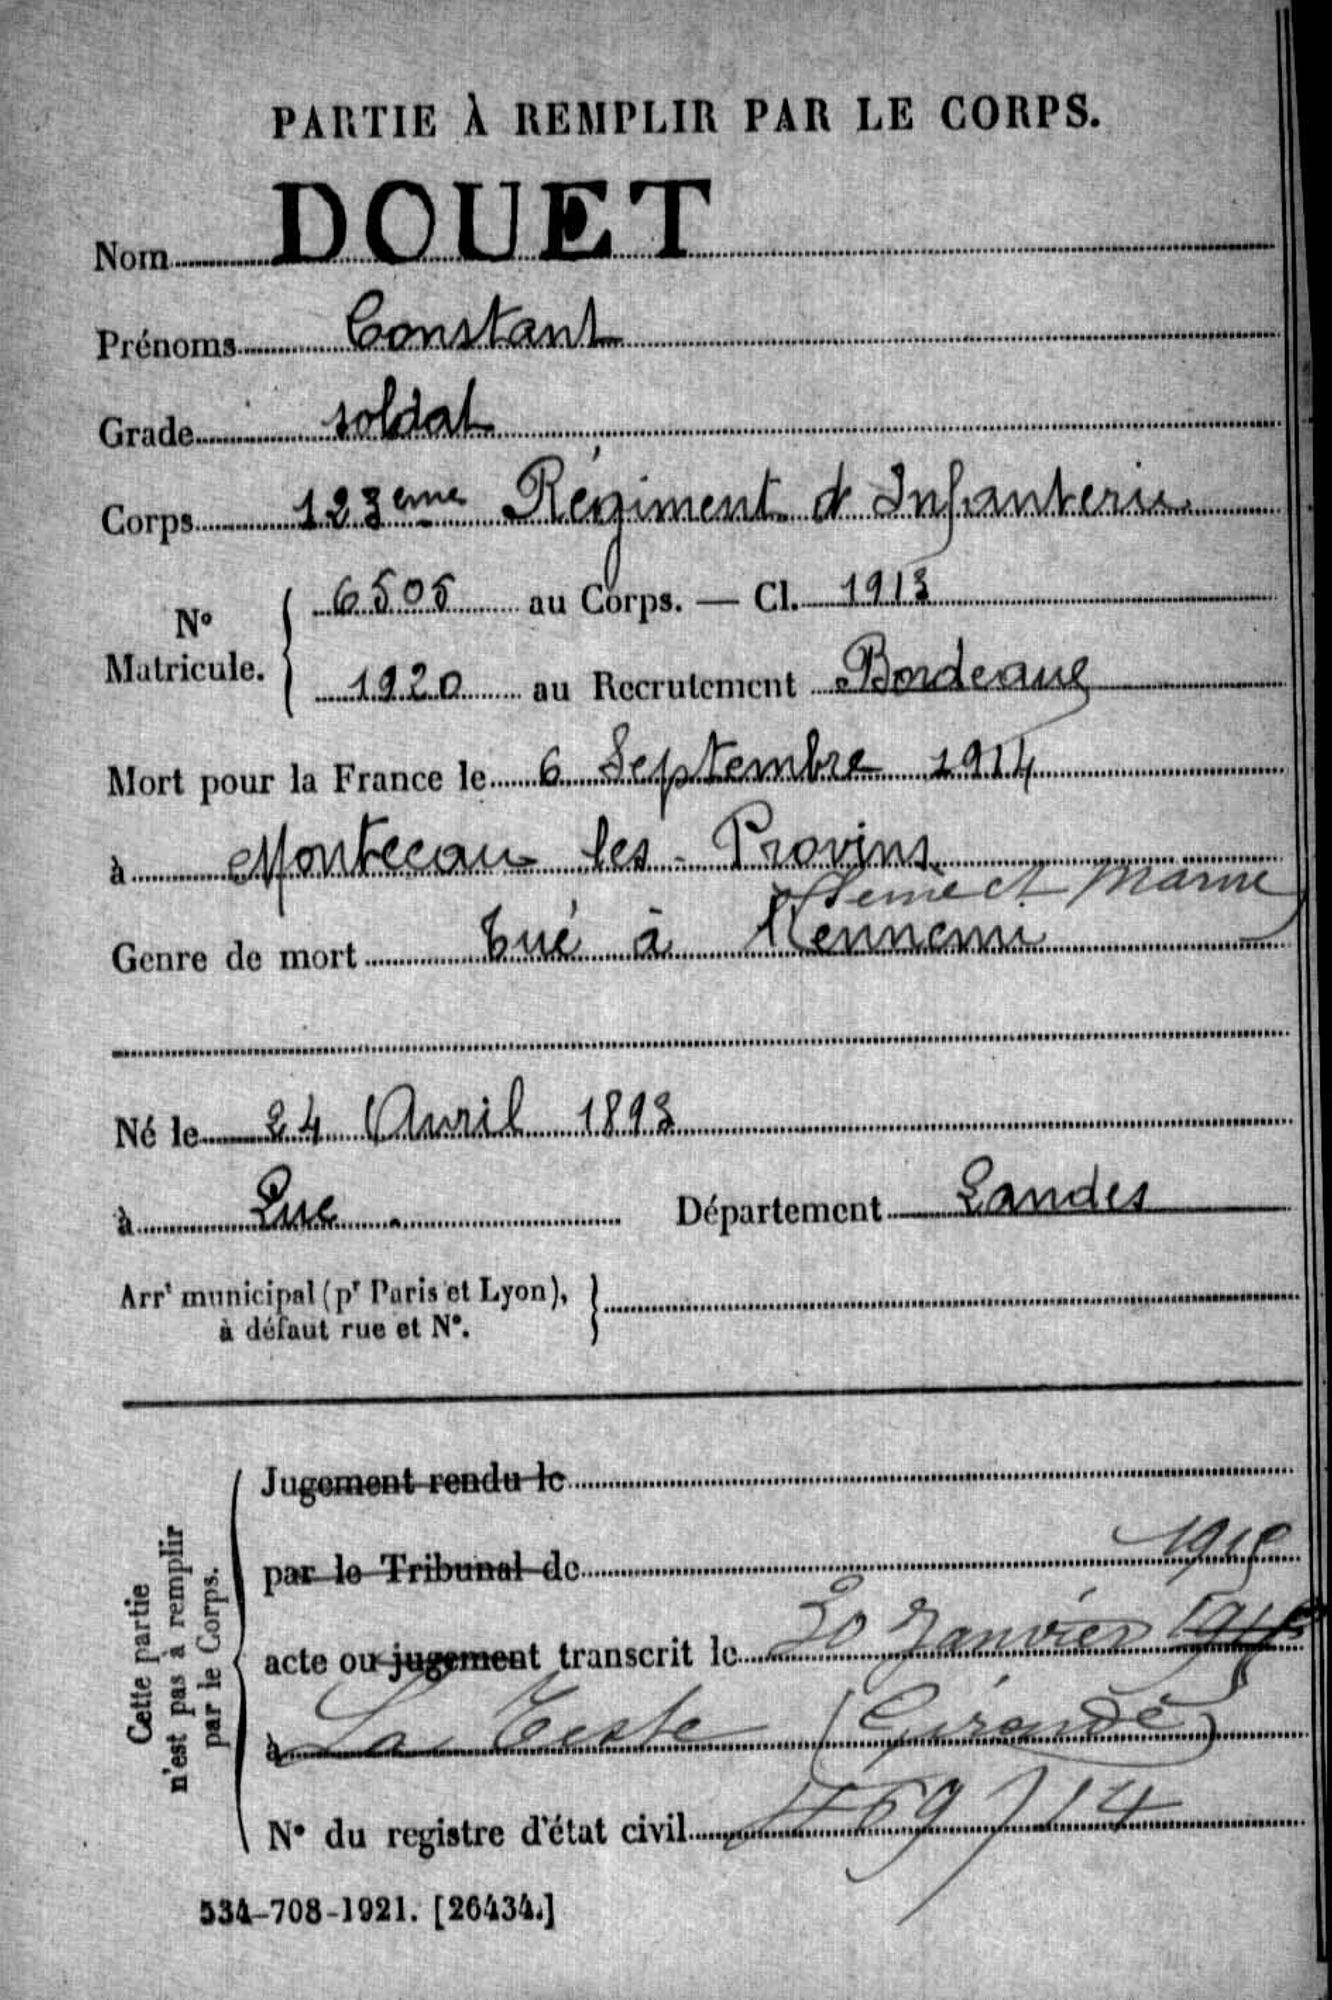 PARTIE À REMPLIR PAR LE CORPS.
Nom DOUET
Prénoms Constant
Grade soldat
Corps 123eme Régiment d Infanterie
N° Matricule. 6505 au Corps. — Cl. 1913
1920 au Recrutement Bordeaux
Mort pour la France le 6 Septembre 1914
à Montceau les Provins
Seine et Marne
Genre de mort tué à l'ennemi
Né le 24 Avril 1893
à Luc Département Landes
Arrt municipal (pr Paris et Lyon),
à défaut rue et N°.
Cette partie
n'est pas à remplir
par le Corps.
Jugement rendu le
par le Tribunal de
acte ou jugement transcrit le 30 Janvier
à La Teste (Gironde)
N° du registre d'état civil 469/14
534-708-1921. [26434.]